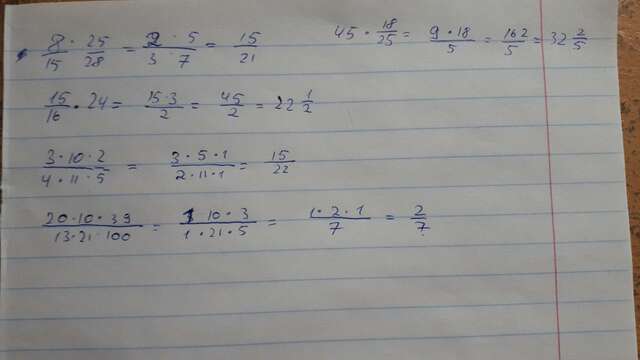 8/15 · 25/28 = 2 · 5/3 · 7 = 15/21
45 · 18/25 = 9 · 18/5 = 162/5 = 32 2/5
15/16 · 24 = 15·3/2 = 45/2 = 22 1/2
3 · 10 · 2/4 · 11 · 5 = 3 · 5 · 1/2 · 11 · 1 = 15/22
20 · 10 · 39/13 · 21 · 100 = 1 10 · 3/1 · 21 · 5 = 1 · 2 · 1/7 = 2/7